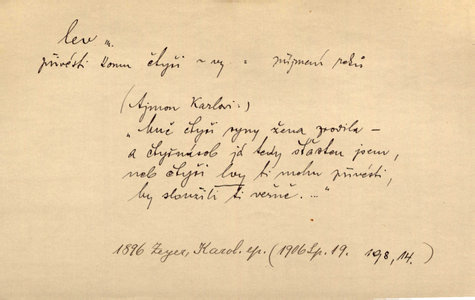 lev m.
přivésti komu čtyři ~ vy = příjmení reků
(Ajmon Karlovi:)
„mně čtyři syny žena zrodila –
a čtyřnásob já tedy šťasten jsem,
neb čtyři lvy ti mohu přivésti,
by sloužili ti věrně. ..."
1896 Zeyer, Karol. ep. (1906 Sp. 19. 198, 14.)